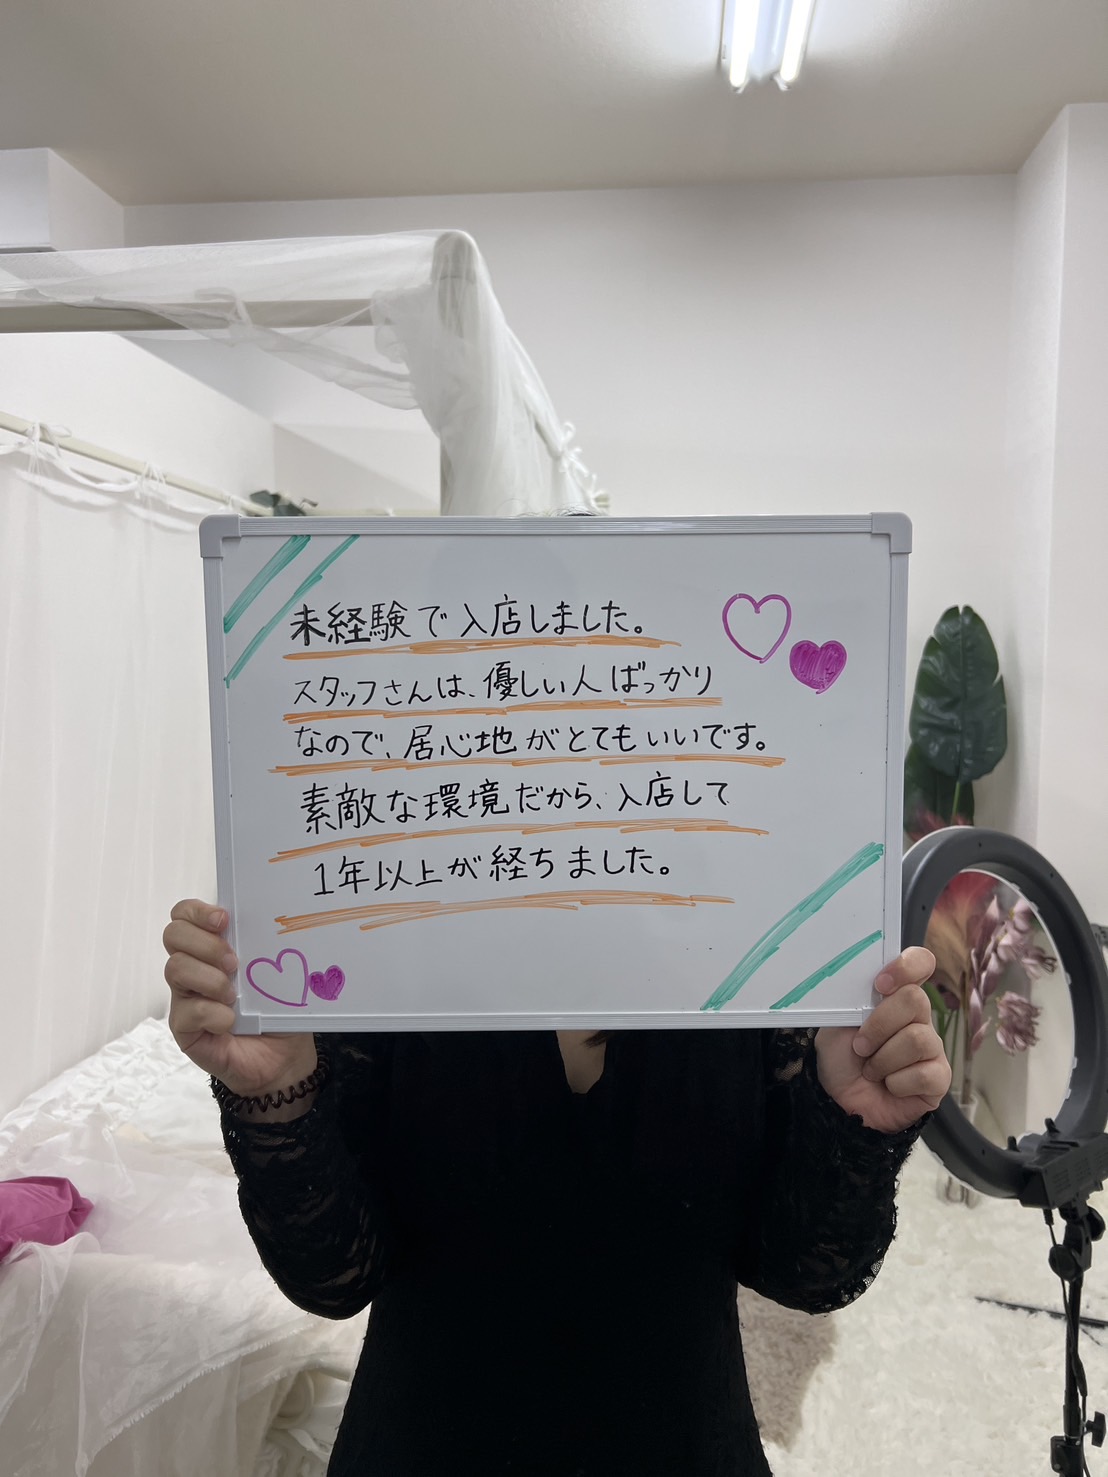 未経験で入店しました。
スタッフさんは、優しい人ばっかり
なので、居心地がとてもいいです。
素敵な環境だから、入店して
1年以上が経ちました。